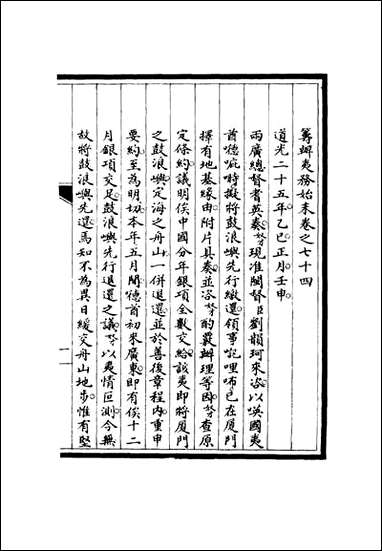 籌辦夷務始末卷之七十四
道光二十五年乙巳正月壬申
兩廣總督耆英奏。奴才現准閩督臣劉韻珂來咨。以㗸國夷
酋德庇時擬將鼓浪嶼先行繳還。領事㖇哩咘已在厦門
擇有地基。緣由附片具奏。並咨奴才酌覈辦理等因。奴才查原
定條約。議明俟中國分年銀項全數交給。該夷即將厦門
之鼓浪嶼。定海之舟山。一併退還。並於善後章程內。重申
要約。至為明切。本年五月聞德酋初來廣東。即有俟十二
月銀項交足。鼓浪嶼先行退還之議。奴才以夷情叵測。今無
故將鼓浪嶼先還。焉知不為異日緩交舟山地步。惟有堅
一